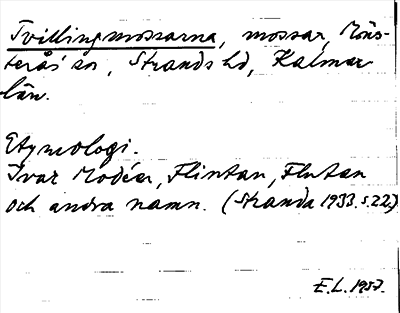 Tvillingmossarna, mossar, Möns-
terås' sn, Strands hd, Kalmar
län.
Etymologi.
Ivar Modéer, Flintan, Flutan
och andra namn. (Stranda 1933. s. 22.)
E.L. 1957.